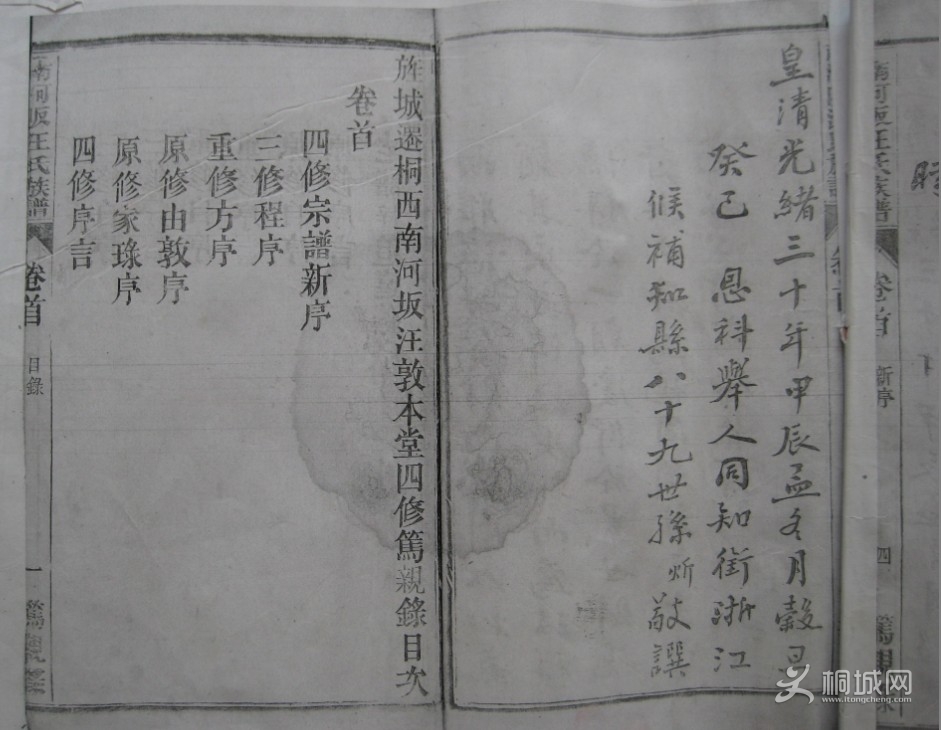 南河坂汪氏族譜
卷首
新序
四
皇清光緒三十年甲辰孟冬月穀旦
癸巳 恩科舉人同知銜浙江
候補知縣八十九世孫炘敬譔
旌城遷桐西南河坂汪敦本堂四修篤親錄目次
卷首
四修宗譜新序
三修程序
重修方序
原修由敦序
原修家琭序
四修序言
南河坂汪氏族譜
卷首
目錄
一
篤親錄
桐城网
www.itongcheng.com